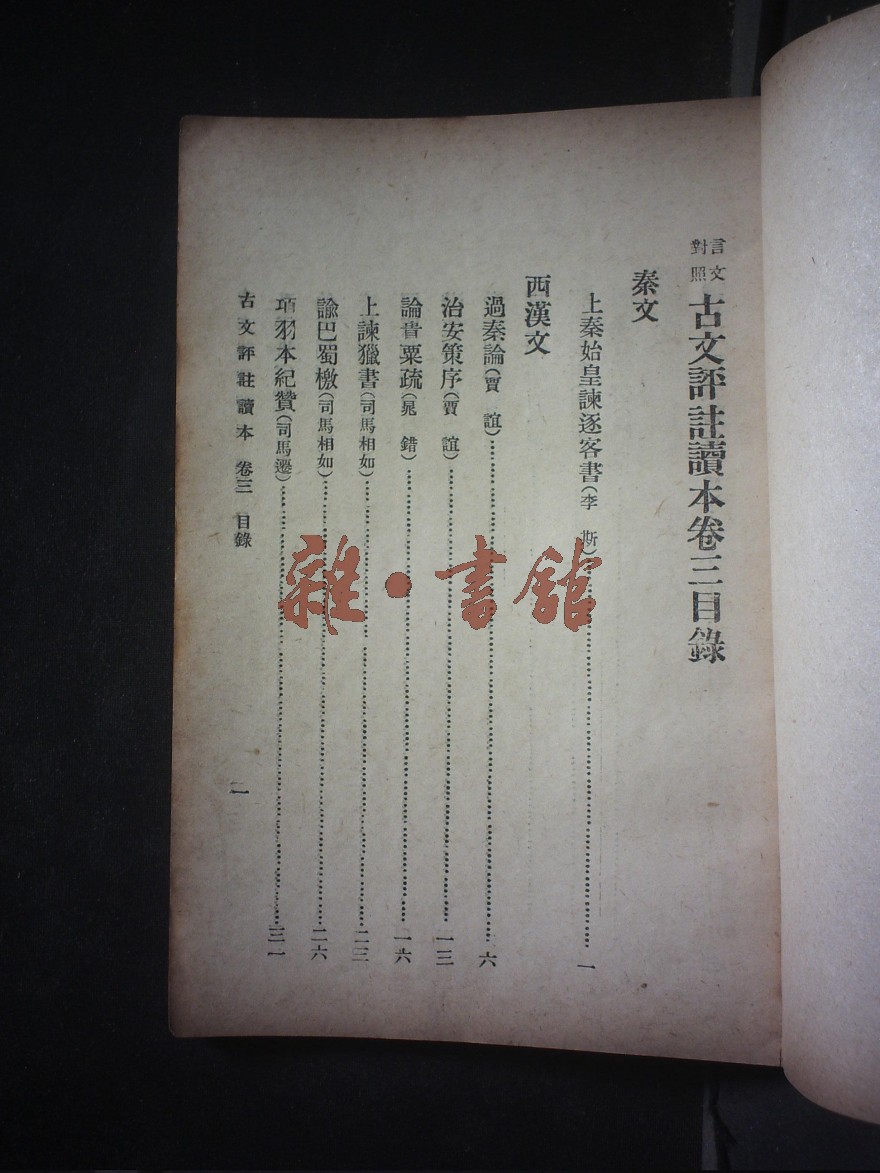 言文對照 古文評註讀本卷三目錄
秦文
上秦始皇諫逐客書(李 斯)……一
西漢文
過秦論(賈 誼)……六
治安策序(賈 誼)……一三
論貴粟疏(晁 錯)……一六
上諫獵書(司馬相如)……二三
諭巴蜀檄(司馬相如)……二六
項羽本紀贊(司馬遷)……三一
古文評註讀本 卷三 目錄
一
雜·書館